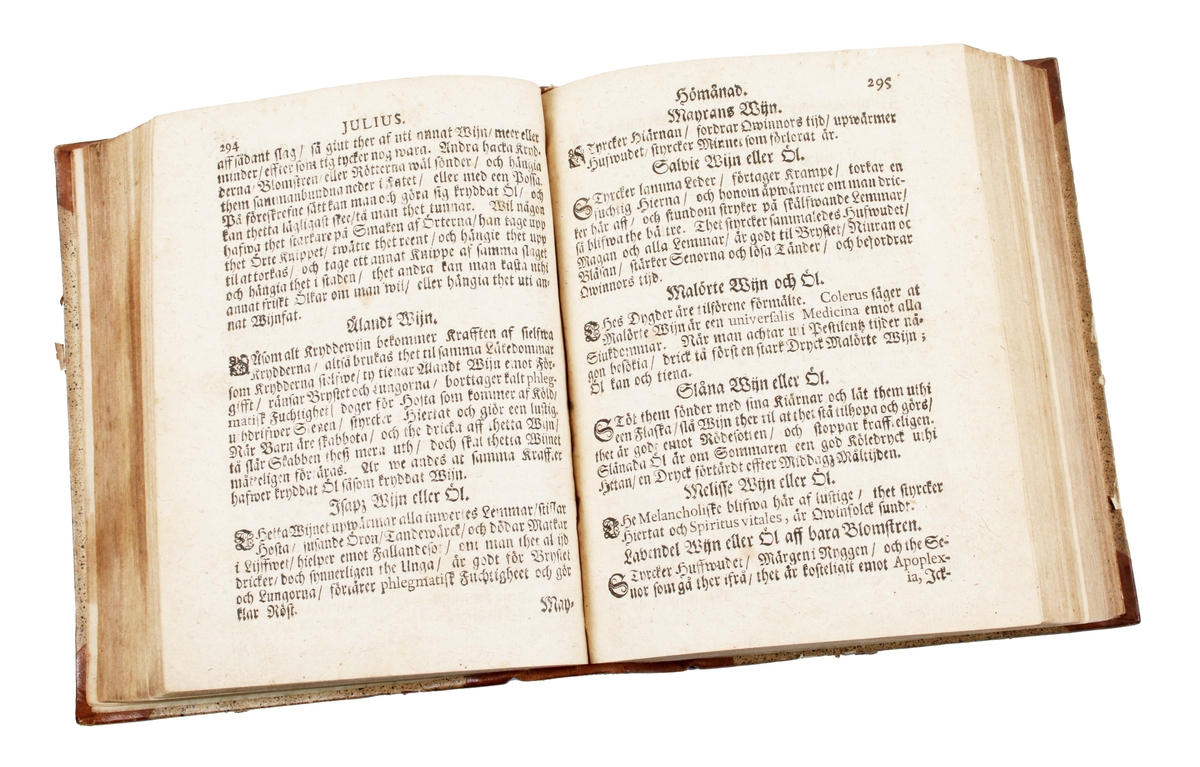 294
JULIUS.
aff sådant slag/ så giut ther af uti annat Wijn/ meer eller
minder/ effter som tig tycker nog wara. Andra hacka Kryd-
derna/ Blomstren/ eller Rötterna wäl sönder/ och hängia
them sammanbundna neder i Fatet/ eller med een Possa.
På föreskrefne sätt kan man och göra sig kryddat Öl/ och
kan thetta lägligast skee/ tå man thet tunnar. Wil någon
hafwa thet starkare på Smaken af Örterna/ han tage upp
thet Örte Knippet/ twätte thet reent/ och hängie thet upp
til at torkas/ och tage ett annat Knippe af samma slaget
och hängia thet i staden/ thet andra kan man kasta uthi
annat friskt Ölkar om man wil/ eller hängia thet uti an-
nat Wijnfat.
Ålandt Wijn.
SÅsom alt Kryddewijn bekommer Krafften af sielfwa
Krydderna/ altså brukas thet til samma Låtedommar
som Krydderna sielfwe/ ty tienar Alandt Wijn emot För-
gifft/ ränsar Bröstet och Lungorna/ borttager kalt phleg-
matisk Fuchtighet/ doger för Hosta som kommer af Köld/
uthdrifwer Stenen/ styrcker Hiertat och giör een lustig.
När Barn äre skabbota/ och the dricka aff thetta Wijn/
tå slår Skabben theß mera uth/ doch skal thetta Wijnet
mätteligen förtäras. Är we andes at samma Krafft er
hafwer kryddat Öl såsom kryddat Wijn.
Isaps Wijn eller Öl.
THetta Wijnet upwärmar alla inwertes Lemmar/ stillar
Hosta/ susande Öron/ Tandewärck/ och dödar Matkar
i Lijffwet/ hielper emot Fallandesot/ om man thet al tijd
dricker/ doch synnerligen the Unga/ är godt för Bröstet
och Lungorna/ förtärer phlegmatisk Fuchtigheet och gör
klar Röst.
May-
Hömånad.
295
Mayrans Wijn.
STyrcker Hiärnan/ fordrar Qwinnors tijd/ upwärmer
Hufwudet/ styrcker Minnet som förlorat är.
Salvie Wijn eller Öl.
STyrcker lamma Leder/ förtager Krampe/ torkar en
fuchtig Hierna/ och honom upwärmer om man dric-
ker här aff/ och stundom stryker på skälfwande Lemmar/
så blifwa the bä tre. Thet styrcker sammaledes Hufwudet/
Magan och alla Lemmar/ är godt til Bröstet/ Niuran oc
Blåsan/ stärker Senorna och lösa Tänder/ och befordrar
Qwinnors tijd.
Malörte Wijn och Öl.
THes Dygder äre tilförene förmälte. Colerus säger at
Malörte Wijn är een universalis Medicina emot alla
Siukdommar. När man achtar uti Pestilentz tijder nå-
gon besökia/ drick tå först en stark Dryck Malörte Wijn;
Öl kan och tiena.
Slåna Wijn eller Öl.
STöt them sönder med sina Kiärnar och lät them uthi
een Flaska/ slå Wijn ther til at thet stå tilhopa och görs/
thet är godt emot Rödesoten/ och stoppar krafftteligen.
Slånada Öl är om Sommaren een god Köledryck uthi
Hetan/ en Dryck förtärdt effter Middags Måltijden.
Melisse Wijn eller Öl.
THe Melancholiske blifwa här af lustige/ thet styrcker
Hiertat och Spiritus vitales, är Qwinfolck sundt.
Lavendel Wijn eller Öl aff bara Blomstren.
STyrcker Huffwudet/ Märgen i Ryggen/ och the Se-
nor som gå ther ifrå/ thet är kosteligit emot Apoplex-
ia, Ick-